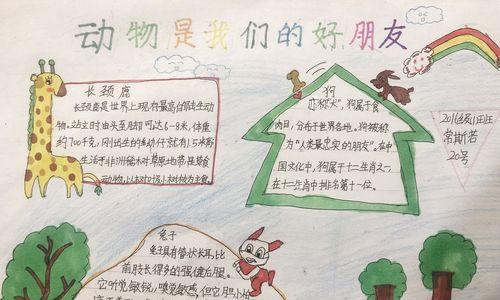 动物是我们的好朋友
长颈鹿
长颈鹿是世界上现存最高的陆生动
物。站立时由头至脚可达6-8米，体重
约700千克，刚出生的幼仔就有1.5米高
生活于非洲稀树草原地带，是草食
动物，以树叶及小树枝为主食。
狗
亦称"犬"，狗属于食
肉目，分布于世界各地。狗被称
为"人类最忠实的朋友"。在中
国文化中，狗属于十二生肖之一
在十二生肖中排名第十一位。
2016级
常斯若
20号
兔子
兔子具有管状长耳，比
前肢长得多的强健后腿。
它听觉敏锐，嗅觉敏感，但它胆小怕